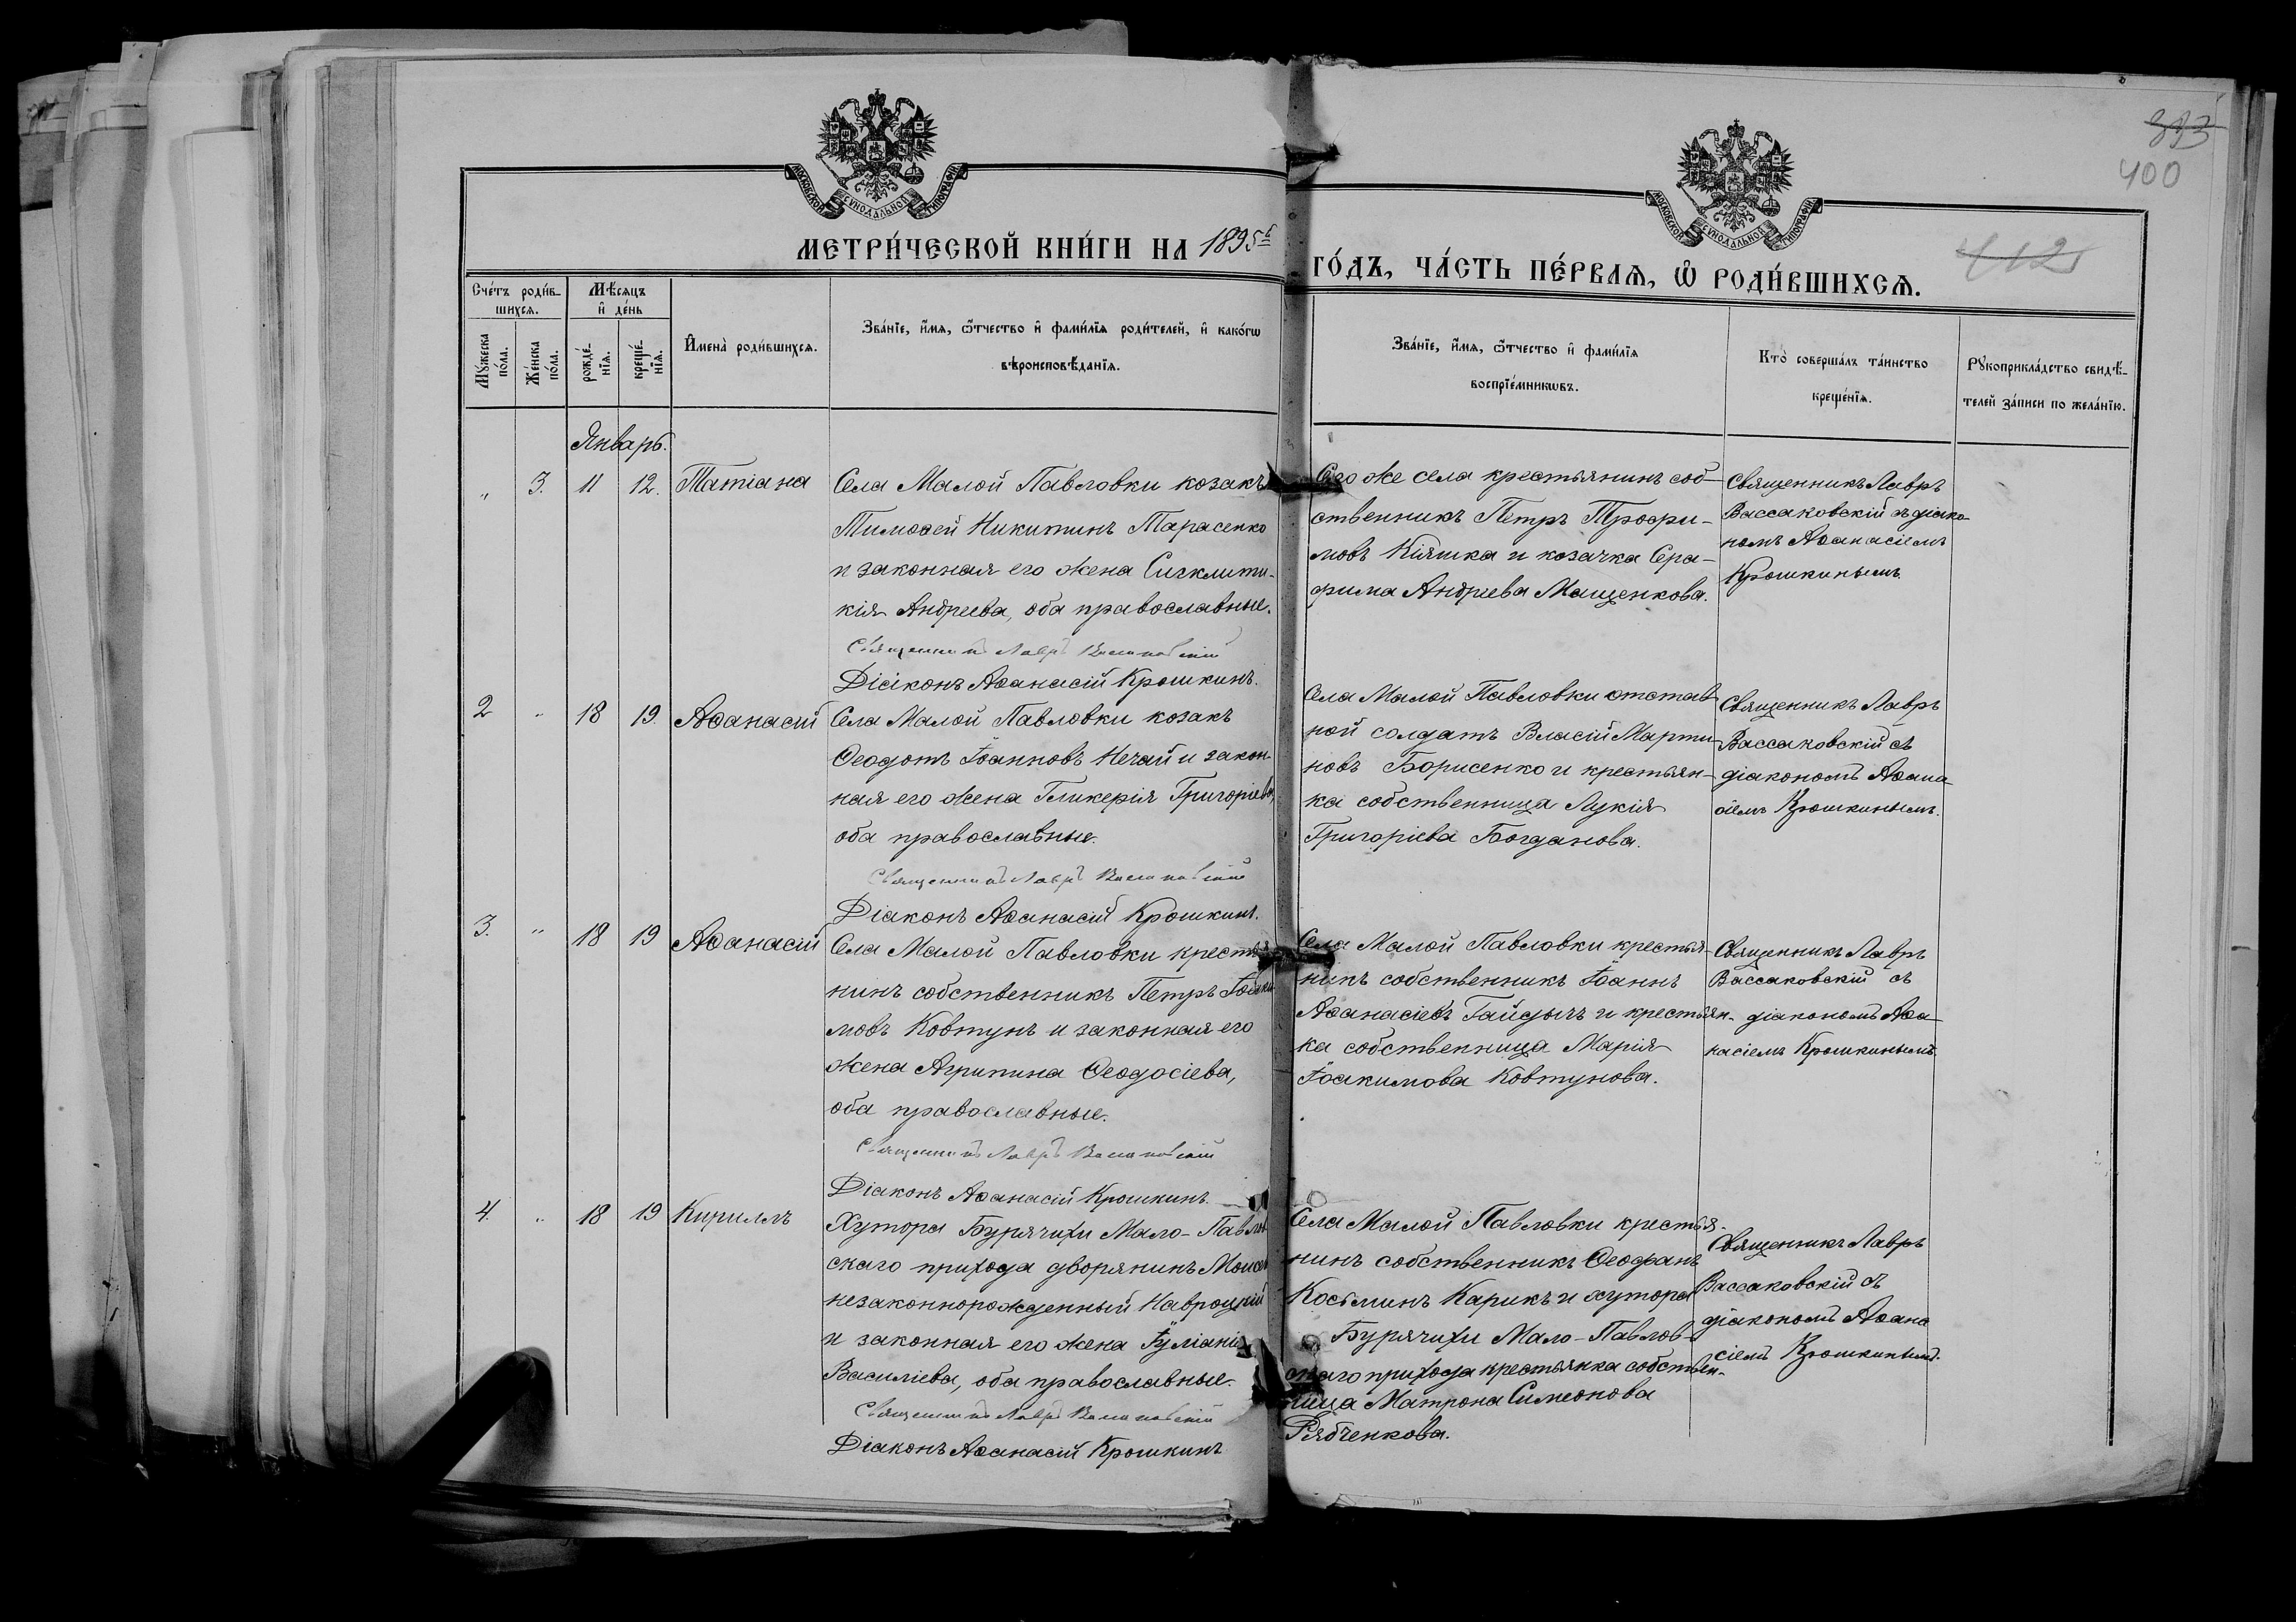 393
400
412
МОСКОВСКОЙ СѴНОДАЛЬНОЙ ТИПОГРАФІИ
МОСКОВСКОЙ СѴНОДАЛЬНОЙ ТИПОГРАФІИ
МЕТРИ́ЧЕСКОЙ КНИ́ГИ НА 1895й
ГО́ДЪ, ЧА́СТЬ ПЕ́РВАѦ, Ѡ҆ РОДИ́ВШИХСѦ.
Сче́тъ роди́в-
шихсѧ.
Мѣ́сѧцъ
и҆ де́нь
Мꙋ́жеска по́ла.
Же́нска по́ла.
рожде́-нїѧ.
креще́-нїѧ.
И҆мена̀ роди́вшихсѧ.
Зва́нїе, и҆́мѧ, ѻ҆́тчество и҆ фами́лїѧ роди́телей, и҆ како́гѡ
вѣроисповѣ́данїѧ.
Зва́нїе, и҆́мѧ, ѻ҆́тчество и҆ фами́лїѧ
воспрїе́мникѡвъ.
Кто̀ соверша́лъ та́инство
креще́нїѧ.
Рꙋкоприкла́дство свидѣ́-
телей за́писи по жела́нїю.
Январь.
„ 3. 11 12. Татіана
Села Малой Павловки козакъ
Тимоѳей Никитинъ Тарасенко
и законная его жена Сигклити-
кія Андреева, оба православные.
Священникъ Лавръ Вассаковскій
Діаконъ Аѳанасій Крошкинъ.
Сего же села крестьянинъ соб-
ственникъ Петръ Трофи-
мовъ Кіяшка и козачка Сера-
фима Андреева Мащенкова.
Священникъ Лавръ
Вассаковскій съ діако-
номъ Аѳанасіемъ
Крошкинымъ.
2 „ 18 19. Аѳанасій
Села Малой Павловки козакъ
Ѳеодотъ Іоанновъ Нечай и закон-
ная его жена Гликерія Григоріева,
оба православные.
Священникъ Лавръ Вассаковскій
Діаконъ Аѳанасій Крошкинъ.
Села Малой Павловки отстав-
ной солдатъ Власій Марти-
новъ Борисенко и крестьян-
ка собственница Лукія
Григоріева Богданова.
Священникъ Лавръ
Вассаковскій съ
діакономъ Аѳана-
сіемъ Крошкинымъ.
3. „ 18 19 Аѳанасій
Села Малой Павловки крестья-
нинъ собственникъ Петръ Іоаки-
мовъ Ковтунъ и законная его
жена Агрипина Ѳеодосіева,
оба православные.
Священникъ Лавръ Вассаковскій
Діаконъ Аѳанасій Крошкинъ.
Села Малой Павловки крестья-
нинъ собственникъ Іоаннъ
Аѳанасіевъ Гайдычъ и крестьян-
ка собственница Марія
Іоакимова Ковтунова.
Священникъ Лавръ
Вассаковскій съ
діакономъ Аѳа-
насіемъ Крошкинымъ.
4. „ 18 19 Кириллъ
Хутора Бурячихи Мало-Павлов-
скаго прихода дворянинъ Моисей
незаконнорожденный Навроцкій
и законная его жена Іуліанія
Василіева, оба православные.
Священникъ Лавръ Вассаковскій
Діаконъ Аѳанасій Крошкинъ
Села Малой Павловки крестья-
нинъ собственникъ Ѳеофанъ
Косьминъ Карикъ и хутора
Бурячихи Мало-Павлов-
скаго прихода крестьянка собствен-
ница Матрона Симеонова
Рябченкова.
Священникъ Лавръ
Вассаковскій съ
діакономъ Аѳана
сіемъ Крошкинымъ.